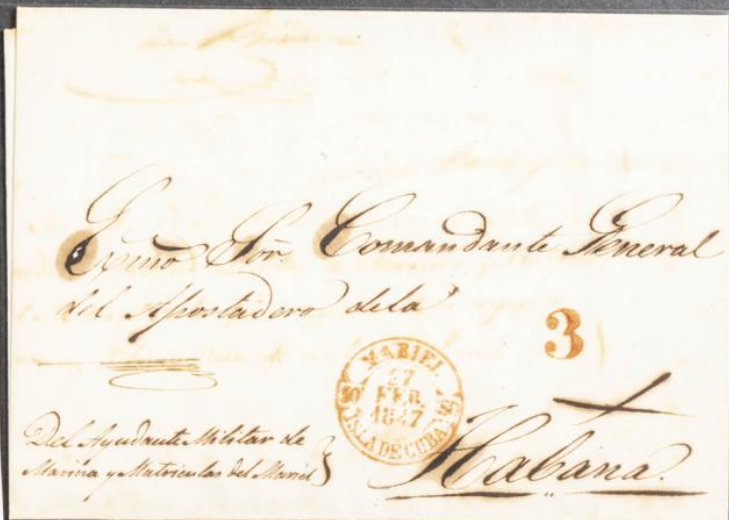 Exmo Sor. Comandante General
del Apostadero dela
3
MARIEL
27
FEB.
1847
ISLA DE CUBA
Habana.
Del Ayudante Militar de
Marina y Matriculas del Mariel